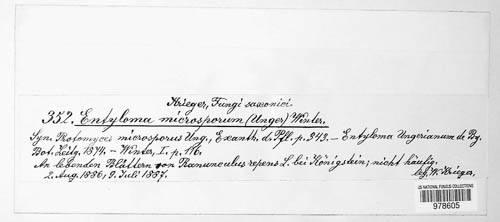 Krieger, Fungi saxonici.
352. Entyloma microsporum (Unger) Winter.
Syn. Protomyces microsporus Ung., Exanth. d. Pfl. p. 343. – Entyloma Ungerianum de By.
Bot. Zeitg. 1874. – Winter, I. p. 116.
An lebenden Blättern von Ranunculus repens L. bei Königstein; nicht häufig.
2. Aug. 1886; 9. Juli 1887. W. Krieger.
US NATIONAL FUNGUS COLLECTIONS
978605